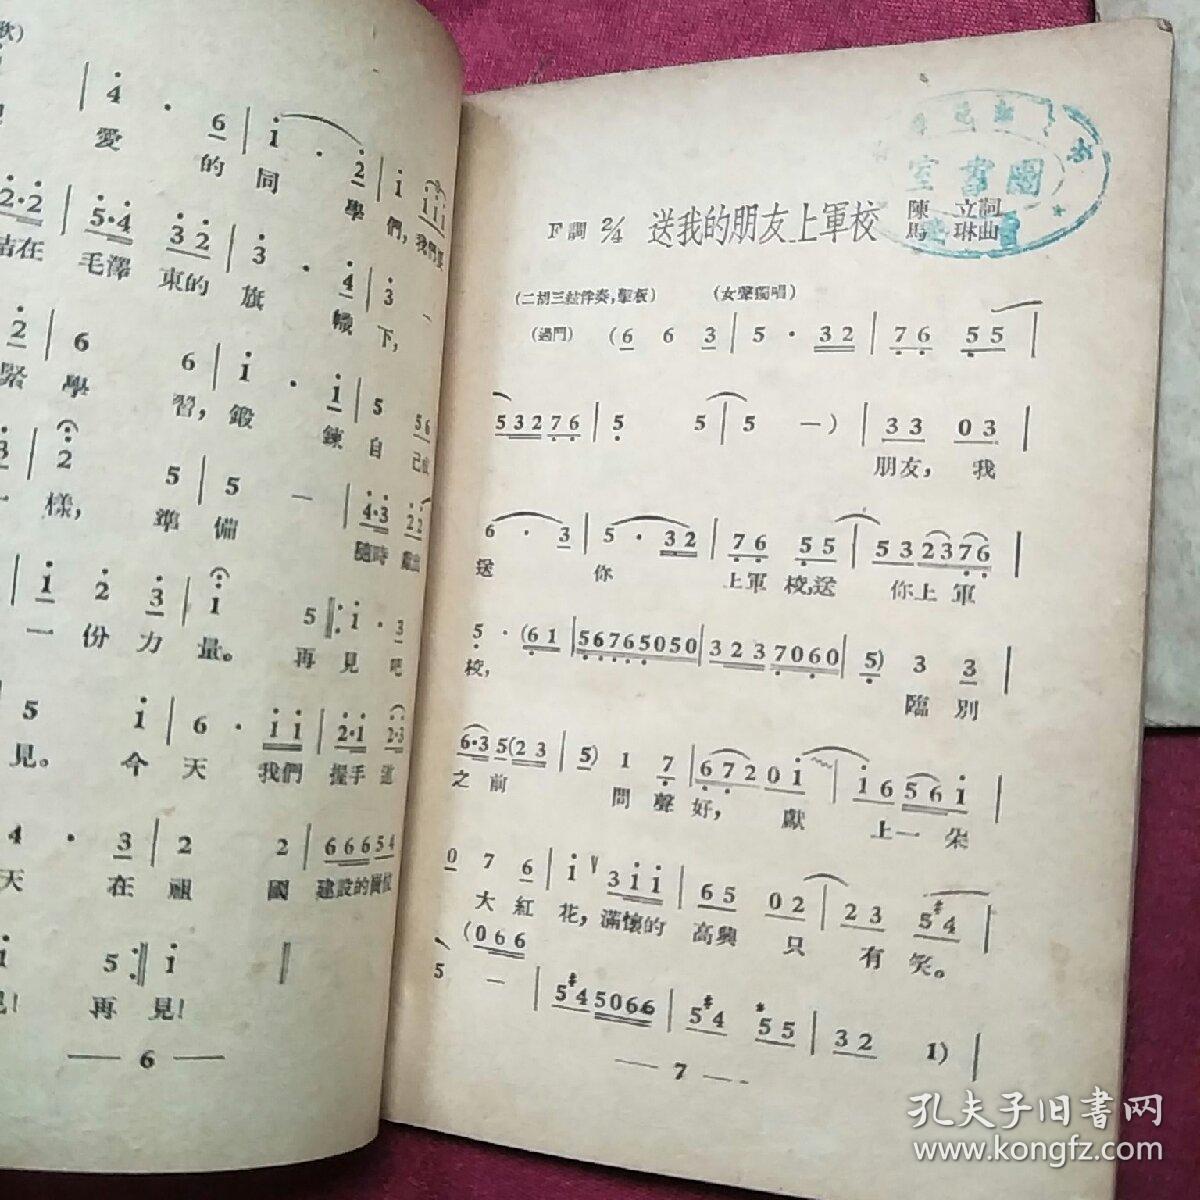 4 · 6 | i · 2 | i i i i
愛 的 同 學 們, 我們要
2·2 | 5·4 3 2 | 3 · 4 | 3 —
結在 毛澤 東的 旗 幟 下,
2 | 6 6 | i · i | 5 5 6
緊 學 習, 鍛 鍊 自 己
3 | 2 5 | 5 — | 4·3 2 2
樣, 準 備 隨時
i 2 3 | i 5 :| i · 3
一 份 力 量。 再 見 吧
5 i | 6 · i i | 2·i 2·3
見。 今 天 我們 握手 道
4 · 3 | 2 2 | 6 6 6 5 4
天 在 祖 國 建設的
i 5 :| i
再 見!
— 6 —
圖書室
F調 2/4 送我的朋友上軍校 陳立詞
馬琳曲
(二胡三絃伴奏,擊板) (女聲獨唱)
(過門) (6 6 3 | 5 · 3 2 | 7 6 5 5 |
5 3 2 7 6 | 5 5 | 5 —) | 3 3 0 3 |
朋友, 我
6 · 3 | 5 · 3 2 | 7 6 5 5 | 5 3 2 3 7 6 |
送 你 上軍 校,送 你上 軍
5 · (6 1 | 5 6 7 6 5 0 5 0 | 3 2 3 7 0 6 0 | 5) 3 3 |
校, 臨 別
6·3 5 (2 3 | 5) 1 7 | 6 7 2 0 i | i 6 5 6 i |
之 前 問 聲 好, 獻 上一 朵
0 7 6 | i 3 i i | 6 5 0 2 | 2 3 5 #4 |
大 紅 花, 滿懷的 高興 只 有 笑。
(0 6 6
5 — | 5 #4 5 0 6 6 | 5 #4 #5 5 | 3 2 1) |
— 7 —
孔夫子旧書网
www.kongfz.com